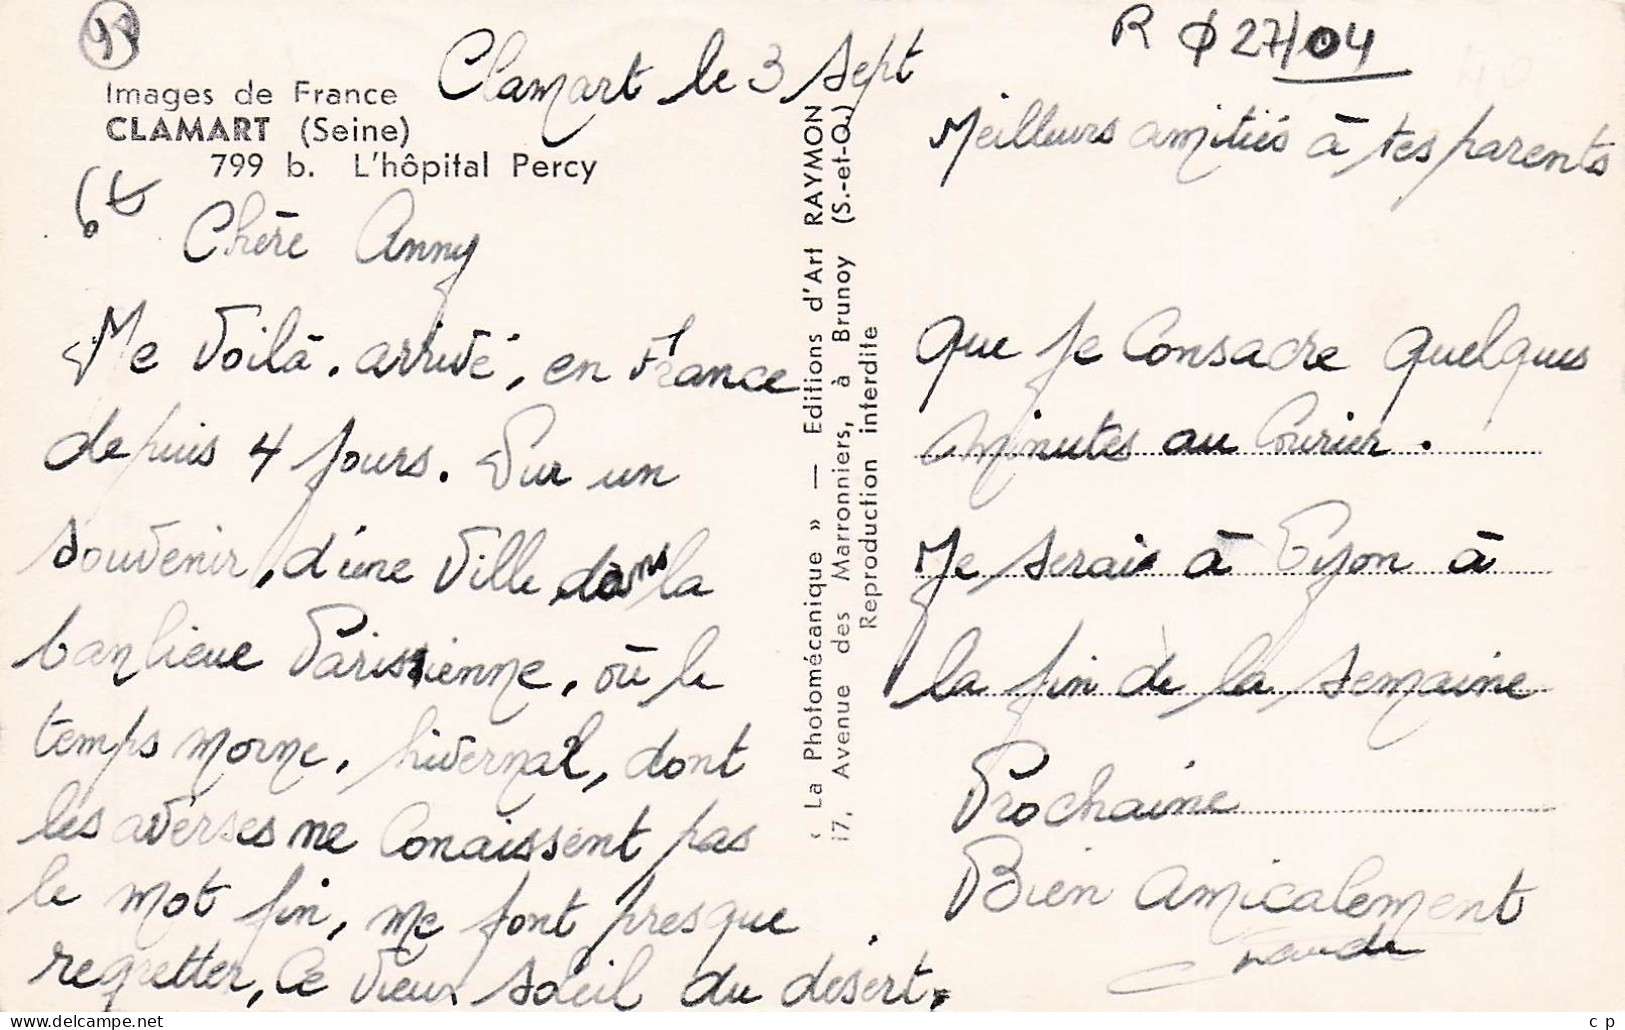 Images de France
CLAMART (Seine)
799 b. L'hôpital Percy
Clamart le 3 Sept
Chère Anny
Me Voilà, arrivé, en France
depuis 4 Jours. Sur un
souvenir, d'une Ville dans la
banlieue Parisienne, où le
temps morne, hivernal, dont
les averses ne Conaissent pas
le mot fin, me font presque
regretter, Ce Vieux soleil du désert,
« La Photomécanique » — Editions d'Art RAYMON
17, Avenue des Marronniers, à Brunoy (S.-et-O.)
Reproduction interdite
R ϕ 27/04
Meilleurs amitiés à tes parents
Que Je Consacre Quelques
minutes au Courier.
Je serais à Gyon à
la fin de la semaine
Prochaine
Bien Amicalement
c p